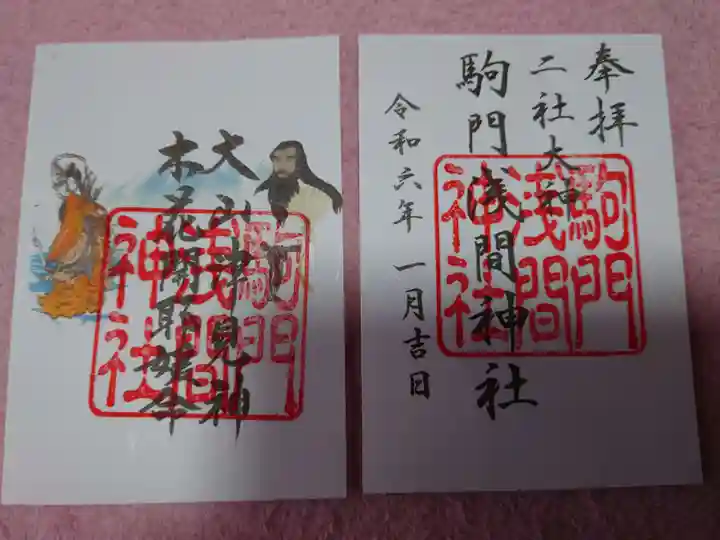 大山津見神
木花開耶姫命
駒門
浅間
神社
奉拝
二社大神
駒門浅間神社
令和六年 一月吉日
駒門
浅間
神社